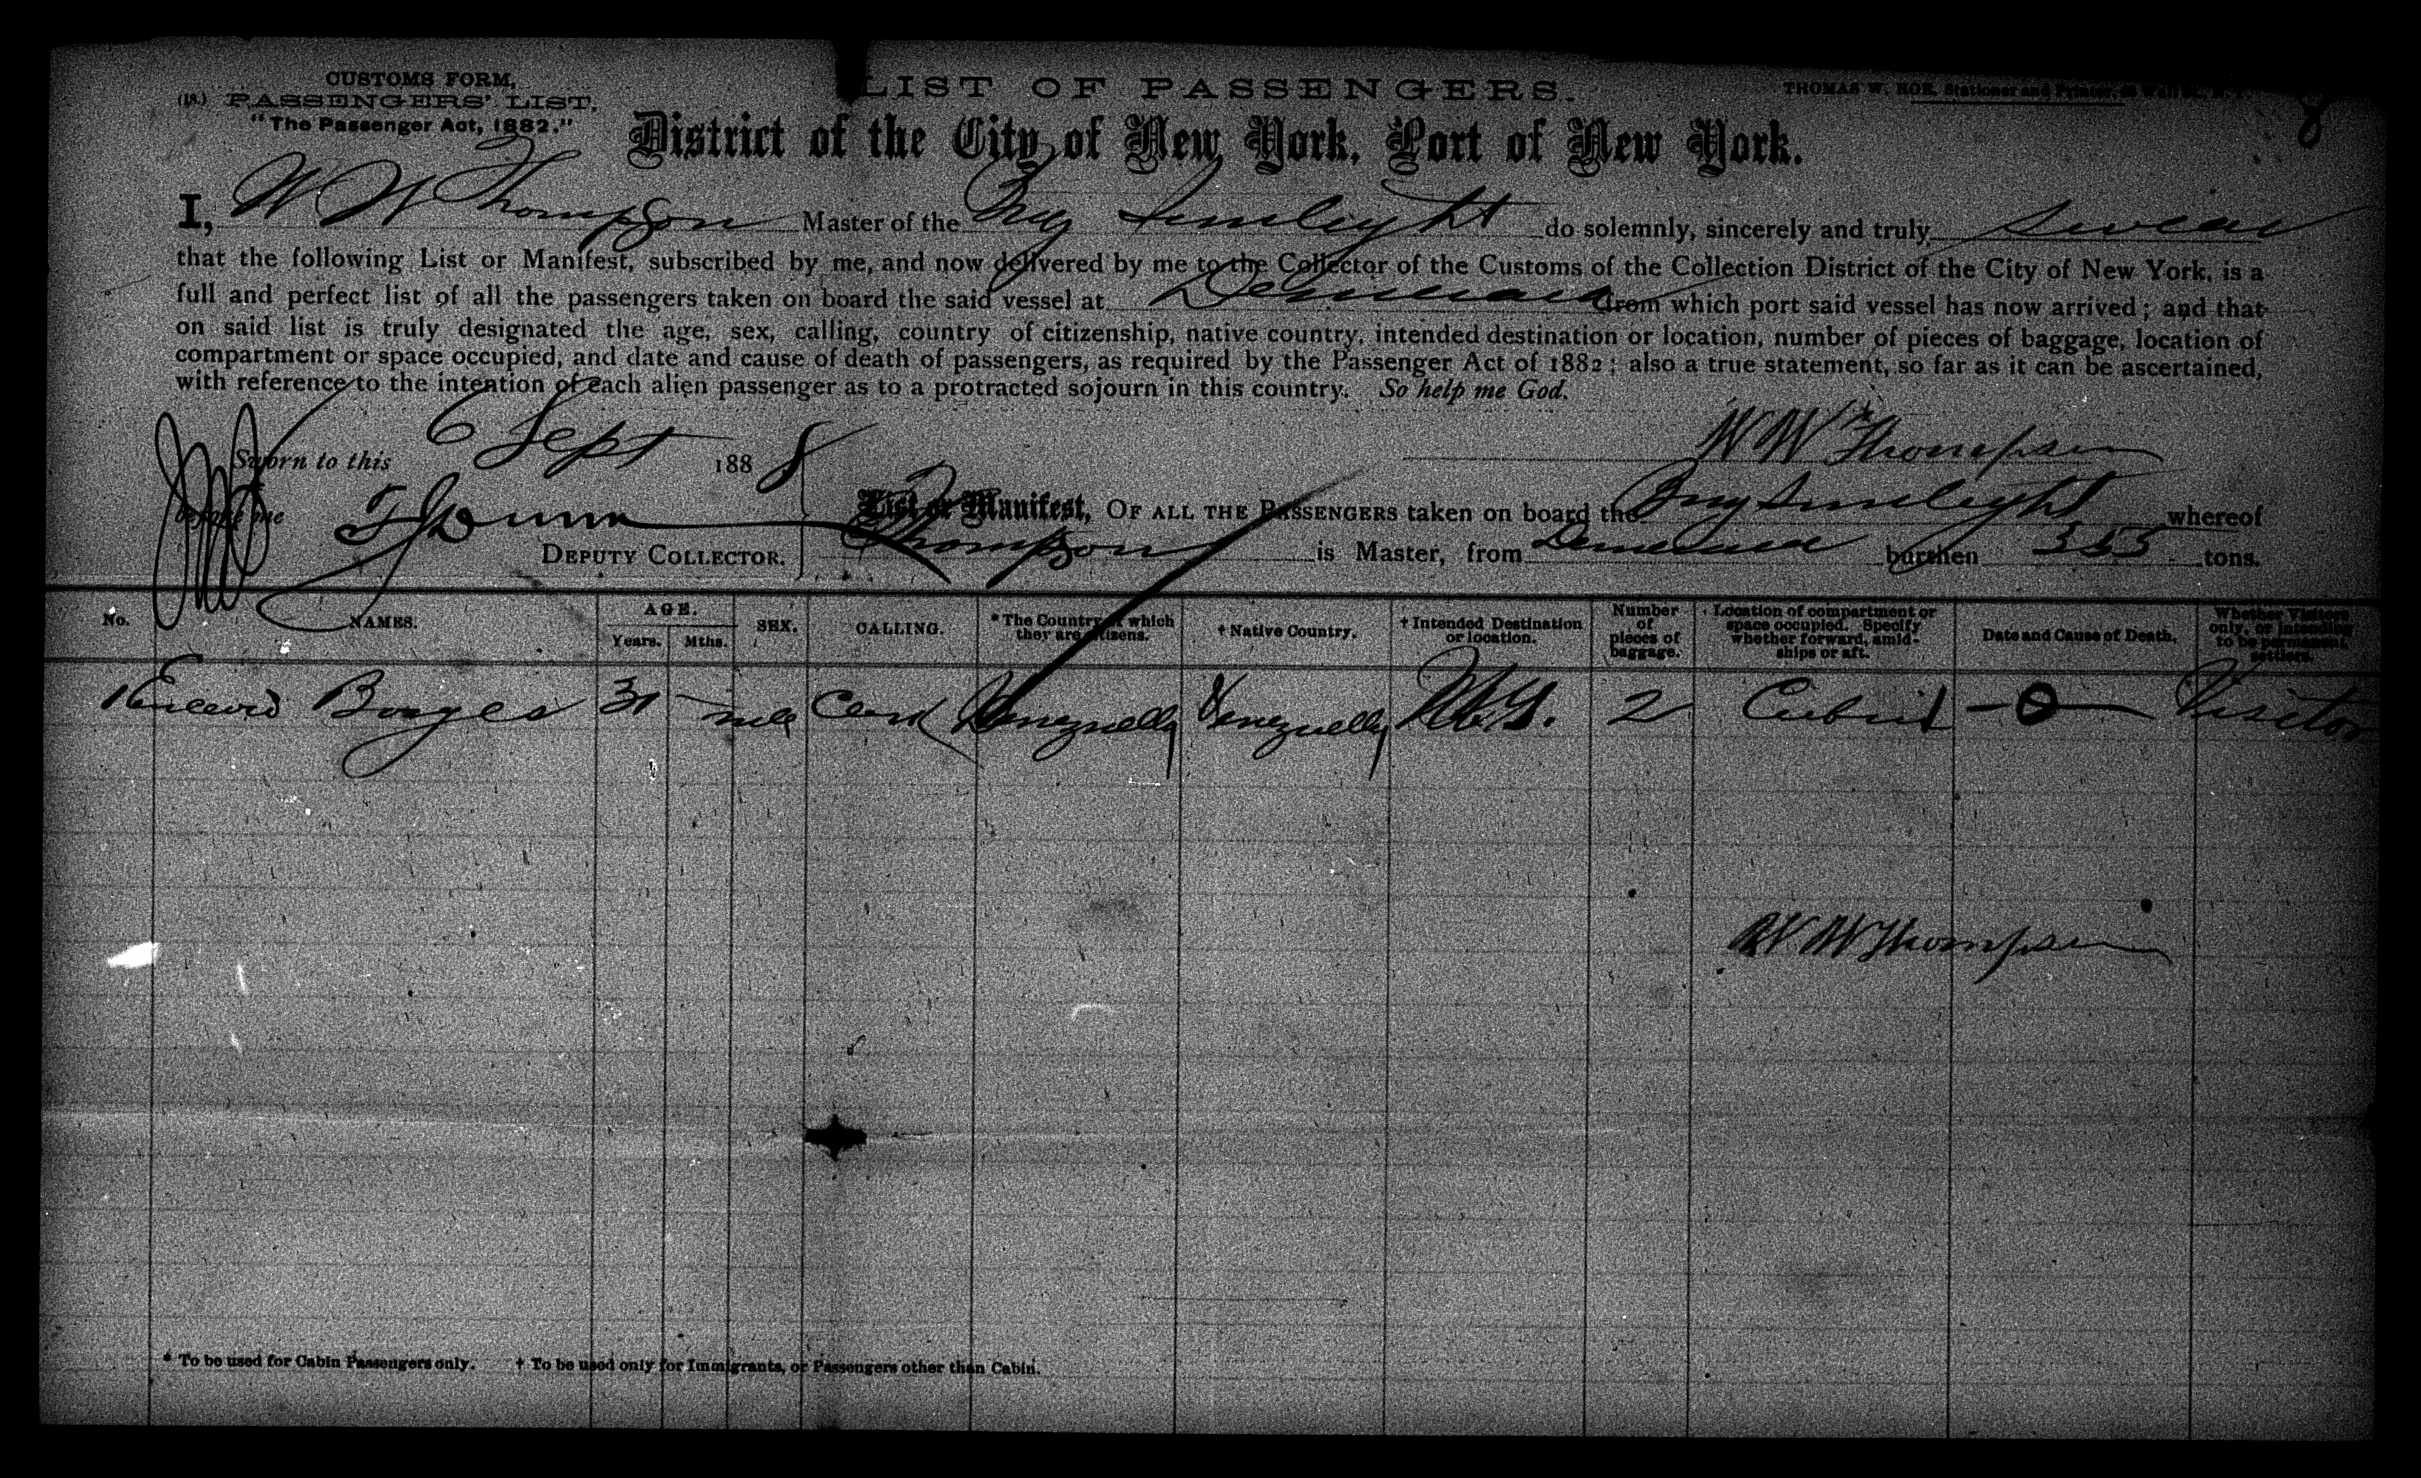 CUSTOMS FORM.
(18.) PASSENGERS' LIST.
"The Passenger Act, 1882."
LIST OF PASSENGERS.
THOMAS W. ROE, Stationer and Printer,
8
District of the City of New York, Port of New York.
I, W W Thompson Master of the Brig Sunlight do solemnly, sincerely and truly swear
that the following List or Manifest, subscribed by me, and now delivered by me to the Collector of the Customs of the Collection District of the City of New York, is a
full and perfect list of all the passengers taken on board the said vessel at Demerara from which port said vessel has now arrived; and that
on said list is truly designated the age, sex, calling, country of citizenship, native country, intended destination or location, number of pieces of baggage, location of
compartment or space occupied, and date and cause of death of passengers, as required by the Passenger Act of 1882; also a true statement, so far as it can be ascertained,
with reference to the intention of each alien passenger as to a protracted sojourn in this country. So help me God.
Sworn to this 6 Sept 1888
W W Thompson
before me Dunn
DEPUTY COLLECTOR.
List or Manifest, OF ALL THE PASSENGERS taken on board the Brig Sunlight whereof
Thompson is Master, from Demerara burthen tons.
No. NAMES. AGE. Years. Mths. SEX. CALLING. * The Country of which they are citizens. † Native Country. † Intended Destination or location. Number of pieces of baggage. Location of compartment or space occupied. Specify whether forward, amidships or aft. Date and Cause of Death. Whether Visitors only, or intending to be permanent settlers.
1 Borges 31 - male Clerk Venezuella Venezuella U.S. 2 Cabin -0- Visitor
W W Thompson
* To be used for Cabin Passengers only. † To be used only for Immigrants, or Passengers other than Cabin.